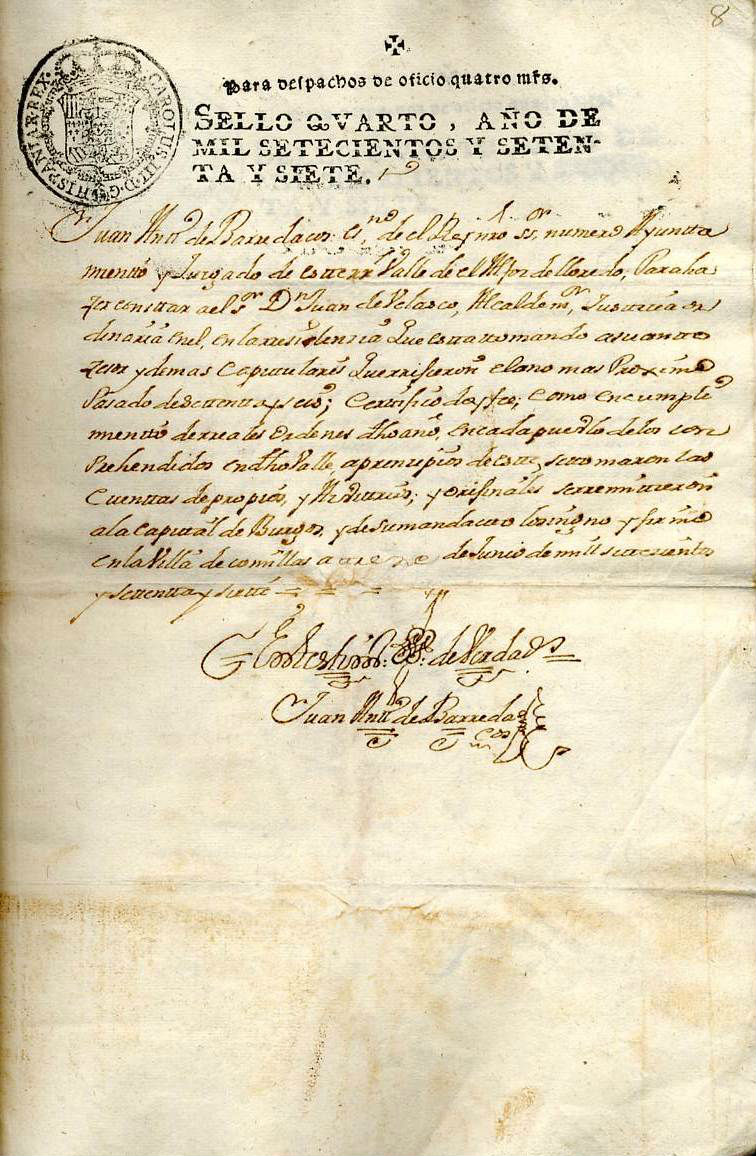 8
✠
Para despachos de oficio quatro mrs.
CAROLUS III D G HISPANIAR REX
SELLO QVARTO, AÑO DE
MIL SETECIENTOS Y SETEN-
TA Y SIETE.
Juan Antto de Barreda cos no de el Rey nro sr, numero Ayuntta
mentto y Juzgado de estte rr Valle de el Alfoz de lloredo, Para ha
zer consttar a el sr Dn Juan de Velasco, Alcalde mr, Justticia or
dinaria en el, en la rresidencia Que estta ttomando a su antte
zesor y demas Capittulares Que rrifieron el ano mas Proximo
Pasado de settentta y seis; Certtifico doy fee; Como en cumpli
mientto de rreales ordenes dho año, en cada pueblo de los com
Prehendidos en dho Valle, a principios de estte, se ttomaron las
Cuenttas de propios, y Arvittrios; y orijinales se rremittieron
a la Capittal de Burgos, y de su mandatto lo signo y firmo
en la Villa de comillas a ttreze de Junio de mill settecienttos
y settentta y siette
En testtimo de Verdad
Juan Antto de Barreda
cos